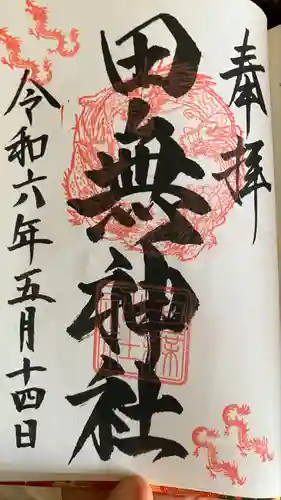 奉拝
田無神社
令和六年五月十四日